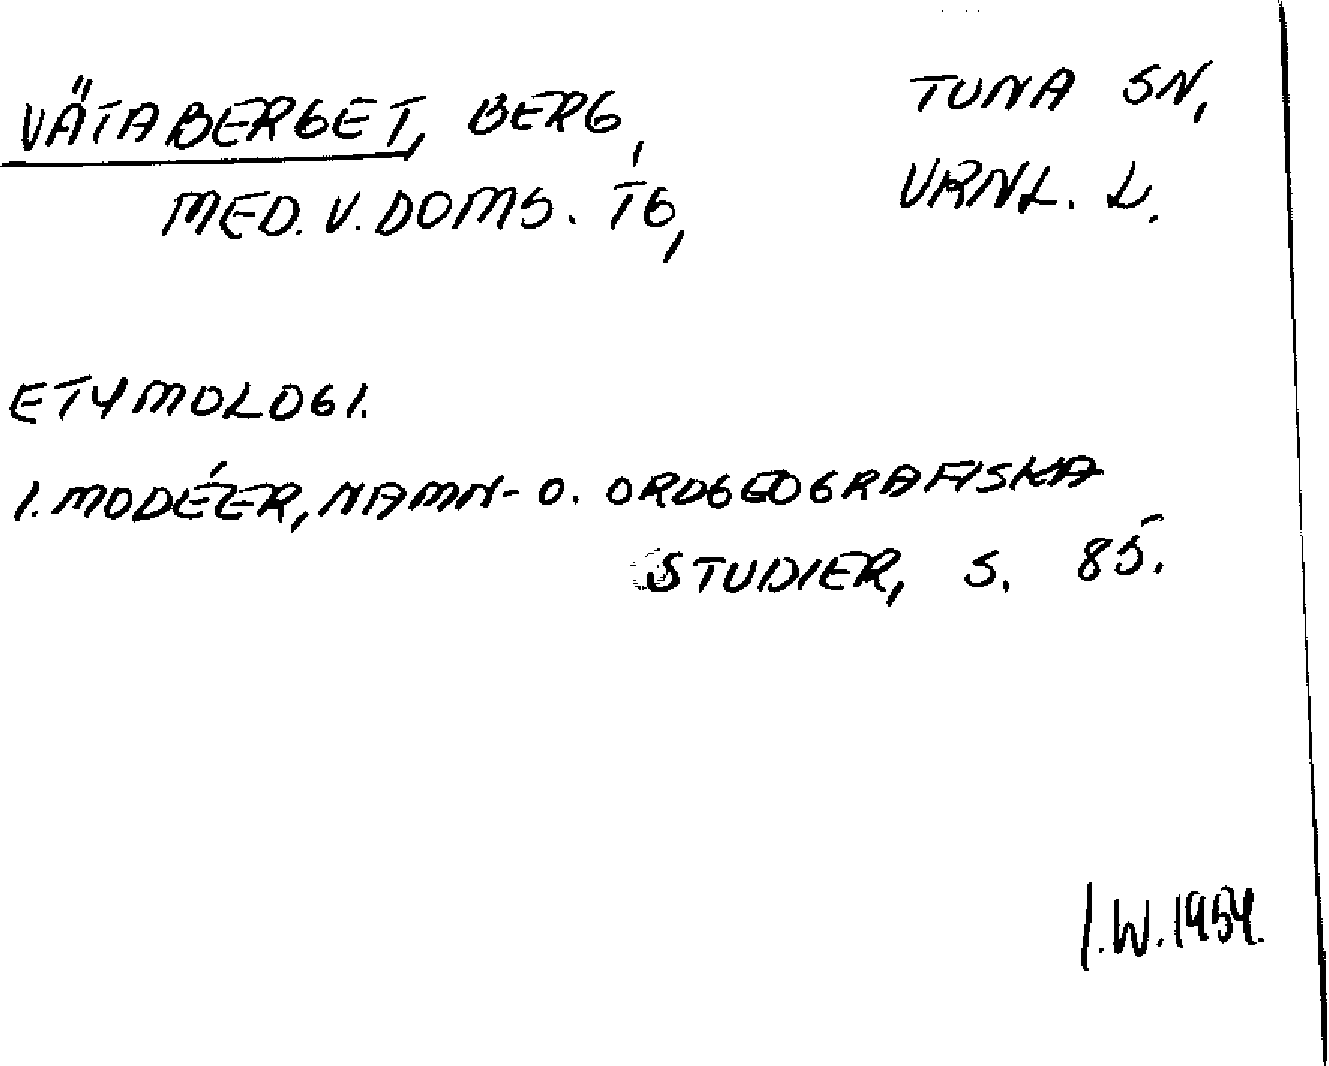 VÄTABERGET, BERG, TUNA SN,
MED. V. DOMS. TG, VRNL. L.
ETYMOLOGI.
I. MODÉER, NAMN- O. ORDGEOGRAFISKA
STUDIER, S. 85.
I.W. 1954.